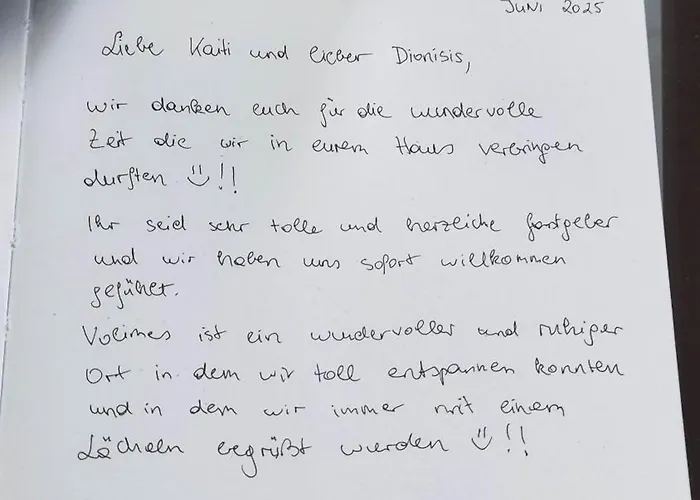 JUNI 2025
Liebe Kaiti und lieber Dionisis,
wir danken euch für die wundervolle
Zeit die wir in eurem Haus verbringen
durften ☺!!
Ihr seid sehr tolle und herzliche Gastgeber
und wir haben uns sofort willkommen
gefühlt.
Volimes ist ein wundervoller und ruhiger
Ort in dem wir toll entspannen konnten
und in dem wir immer mit einem
Lächeln begrüßt wurden ☺!!